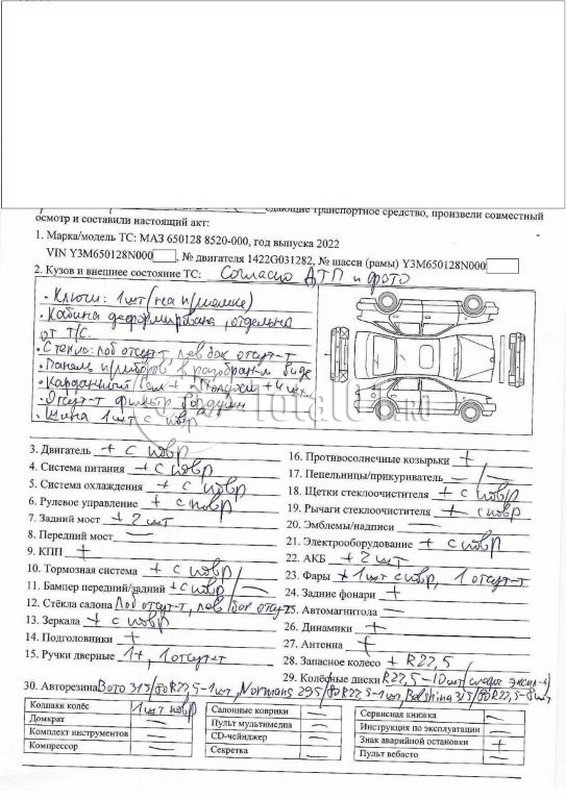 едающие транспортное средство, произвели совместный
осмотр и составили настоящий акт:
1. Марка/модель ТС: МАЗ 650128 8520-000, год выпуска 2022
VIN Y3M650128N000, № двигателя 1422G031282, № шасси (рамы) Y3M650128N000
2. Кузов и внешнее состояние ТС: Согласно ДТП и фото
• Ключи: 1 шт
• Кабина деформирована, отдельна
от Т/С.
• Стекло: лоб отсут-т, лев бок отсут-т
• Панель приборов в разобран-м виде
• Карданный
• Отсут-т фильтр
• Шина 1 шт с повр
Total01.RU
3. Двигатель + с повр
4. Система питания + с повр
5. Система охлаждения + с повр
6. Рулевое управление + с повр
7. Задний мост + 2 шт
8. Передний мост —
9. КПП +
10. Тормозная система + с повр
11. Бампер передний/задний + с повр/—
12. Стёкла салона Лоб отсут-т, лев бок отсут
13. Зеркала + с повр
14. Подголовники +
15. Ручки дверные 1+, 1 отсут-т
16. Противосолнечные козырьки +
17. Пепельницы/прикуриватель —/—
18. Щетки стеклоочистителя + с повр
19. Рычаги стеклоочистителя + с повр
20. Эмблемы/надписи —
21. Электрооборудование + с повр
22. АКБ + 2 шт
23. Фары + 1 шт с повр, 1 отсут-т
24. Задние фонари +
25. Автомагнитола —
26. Динамики +
27. Антенна +
28. Запасное колесо + R22,5
29. Колёсные диски R22,5-10шт
30. Авторезина Boto 315/80R22,5-1шт, Normans 295/80R22,5-1шт, Belshina 315/80R22,5-8шт
Колпаки колёс 1шт повр Салонные коврики — Сервисная книжка —
Домкрат — Пульт мультимедиа — Инструкция по эксплуатации —
Комплект инструментов — CD-чейнджер — Знак аварийной остановки +
Компрессор — Секретка — Пульт вебасто —